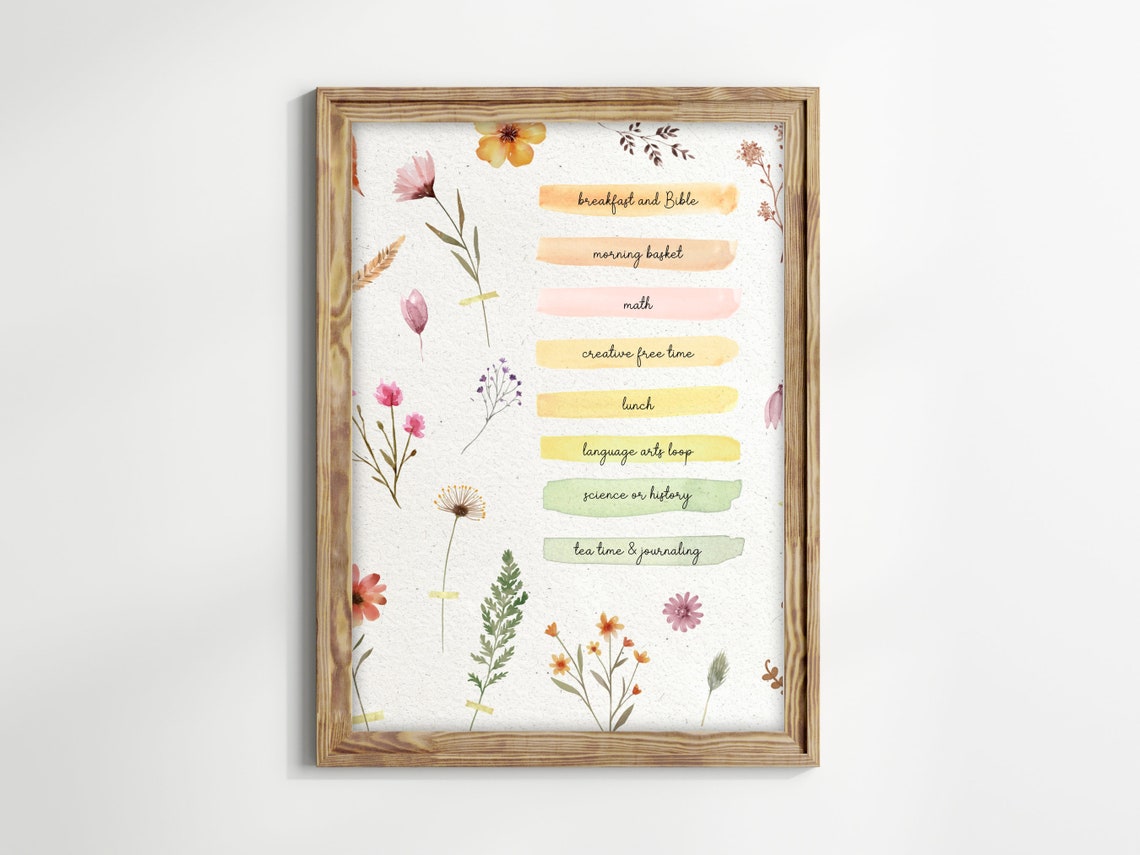 breakfast and Bible
morning basket
math
creative free time
lunch
language arts loop
science or history
tea time & journaling